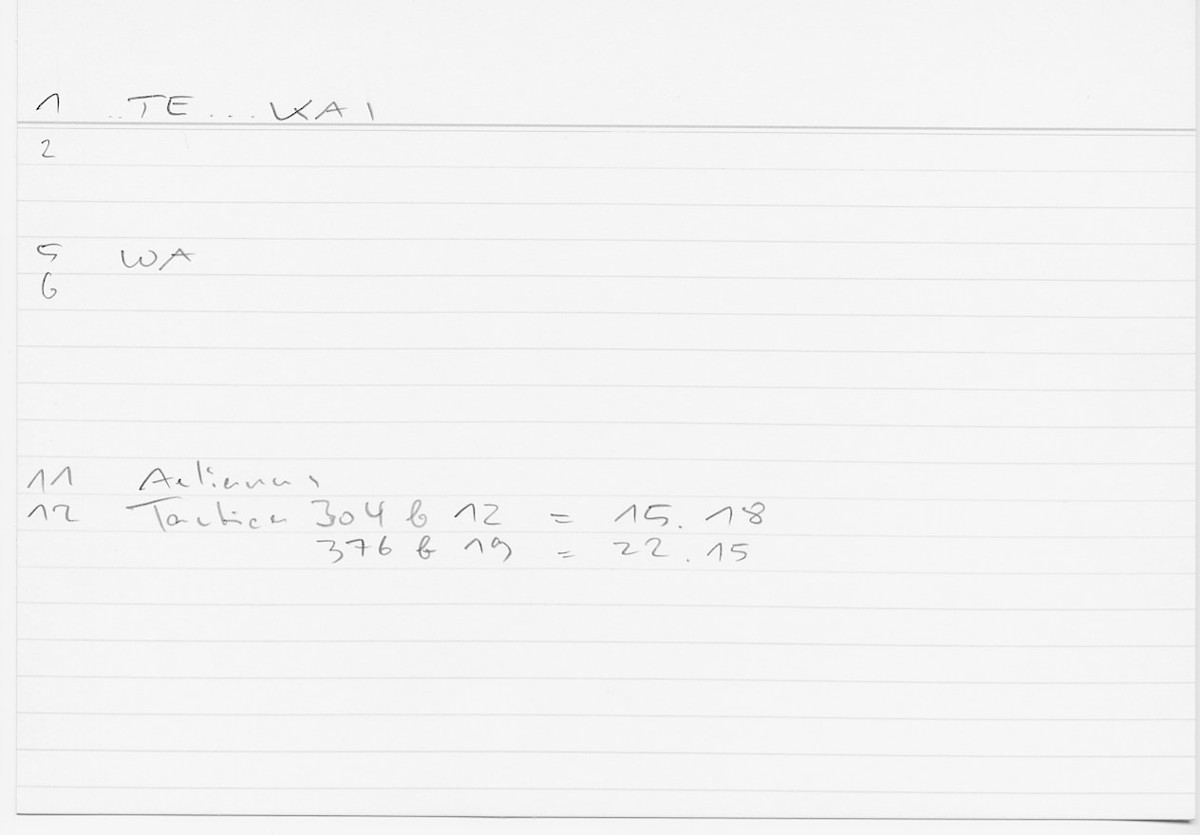 1 ..TE... KAI
2
5 WA
6
11 Aelianus,
12 Tactica 304 b 12 = 15. 18
376 b 19 = 22. 15